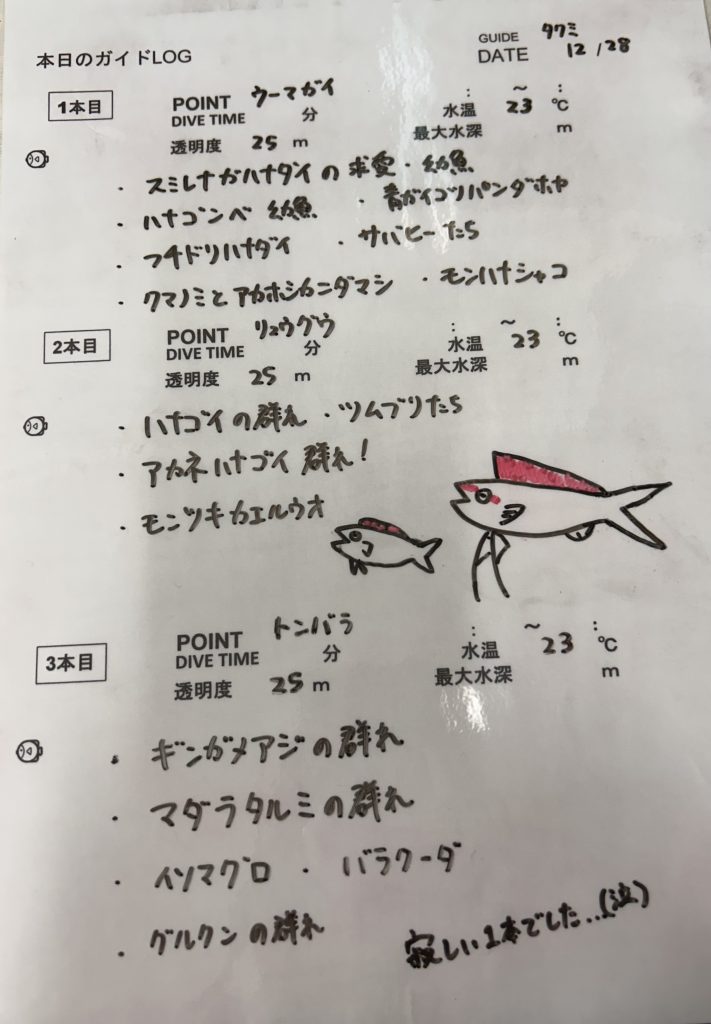 本日のガイドLOG
GUIDE タクミ
DATE 12/28
1本目
POINT ウーマガイ
: ～ :
DIVE TIME 分
水温 23 ℃
透明度 25 m
最大水深 m
・スミレナガハナダイの求愛・幼魚
・ハナゴンベ 幼魚 ・青がイコツパンダホヤ
・フチドリハナダイ ・サバヒーたち
・クマノミとアカホシカニダマシ ・モンハナシャコ
2本目
POINT リュウグウ
: ～ :
DIVE TIME 分
水温 23 ℃
透明度 25 m
最大水深 m
・ハナゴイの群れ・ツムブリたち
・アカネハナゴイ群れ!
・モンツキカエルウオ
3本目
POINT トンバラ
: ～ :
DIVE TIME 分
水温 23 ℃
透明度 25 m
最大水深 m
・ギンガメアジの群れ
・マダラタルミの群れ
・イソマグロ ・バラクーダ
・グルクンの群れ
寂しい1本でした...(泣)